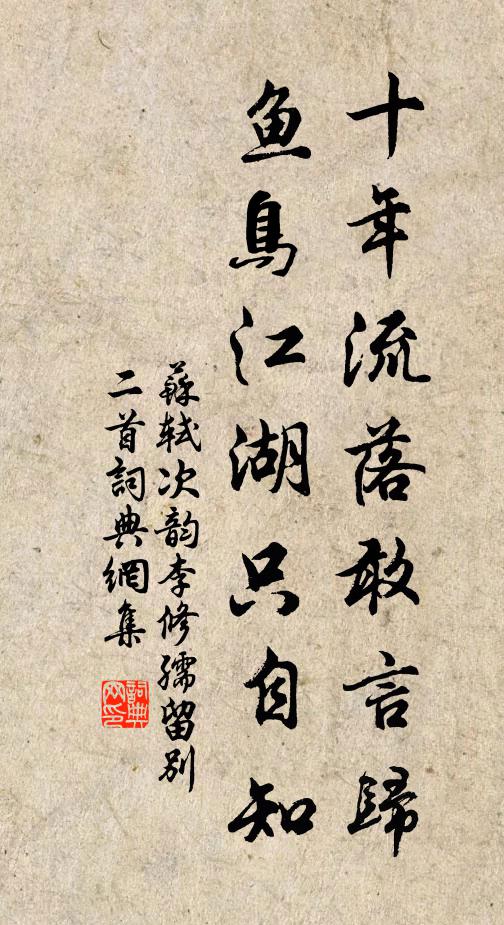 十年流落敢言歸
鱼鳥江湖只自知
蘇軾次韵李修孺留别
二首詞典網集
詞典
网印